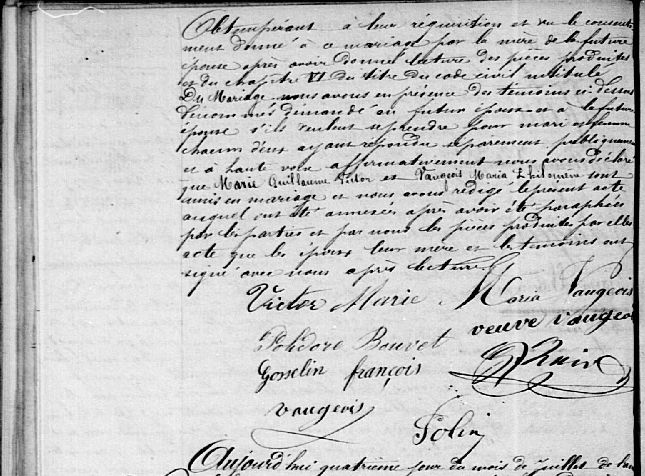 Obtempérant à leur réquisition et vu le consente
ment donné à ce mariage par la mère de la future
épouse après avoir donné lecture des pièces produites
et du chapitre VI du titre du code civil intitulé
Du Mariage nous avons en présence des témoins ci dessus
dénommés demandé au futur époux et à la future
épouse s'ils veulent se prendre pour mari et femme
chacun d'eux ayant répondu séparément publiquement
et à haute voix affirmativement nous avons déclaré
que Marie Guillaume Victor et Vaugeois Maria sont
unis en mariage et nous avons rédigé le présent acte
auquel ont été annexés après avoir été paraphées
par les parties et par nous les pièces produites par elles
acte que les époux leur mère et les témoins ont
signé avec nous après lecture
Victor Marie Maria Vaugeois
veuve Vaugeois
Polidore Bouvet
Gosselin françois
vaugeois
Aujourd'hui quatrième jour du mois de Juillet de